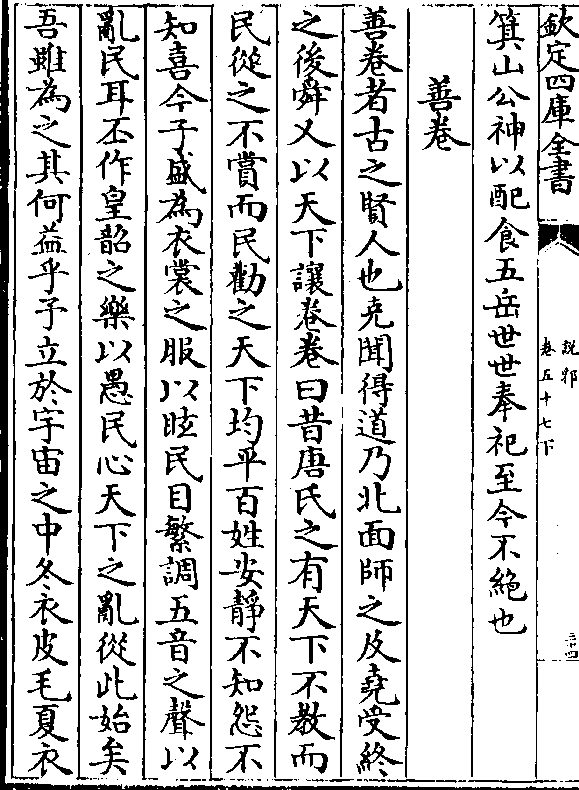 欽定四庫全書
說郛
卷五十七下
三十四
箕山公神以配食五岳世世奉祀至今不絶也
善卷
善卷者古之賢人也堯聞得道乃北面師之及堯受終
之後舜又以天下讓卷卷曰昔唐氏之有天下不教而
民從之不賞而民勸之天下均平百姓安靜不知怨不
知喜今子盛為衣裳之服以眩民目繁調五音之聲以
亂民耳丕作皇韶之樂以愚民心天下之亂從此始矣
吾雖為之其何益乎子立於宇宙之中冬衣皮毛夏衣